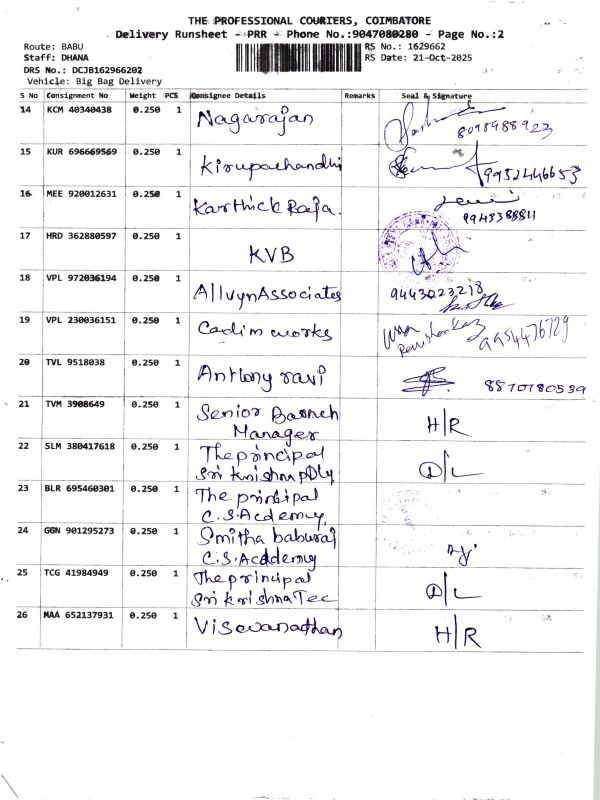 THE PROFESSIONAL COURIERS, COIMBATORE
Delivery Runsheet - PRR - Phone No.:9047080280 - Page No.:2
Route: BABU RS No.: 1629662
Staff: DHANA RS Date: 21-Oct-2025
DRS No.: DCJB162966202
Vehicle: Big Bag Delivery
S No Consignment No Weight PCS Consignee Details Remarks Seal & Signature
14 KCM 40340438 0.250 1 Nagarajan
8098488923
15 KUR 696669569 0.250 1 Kirupachandhi 9952446653
16 MEE 920012631 0.250 1 Karthick Raja.
17 HRD 362880597 0.250 1 KVB
18 VPL 972036194 0.250 1 Allvyn Associates 9443023218
19 VPL 230036151 0.250 1 Cadim works 9954476729
20 TVL 9518038 0.250 1 Antony ravi 8870780539
21 TVM 3908649 0.250 1 Senior Barnch
Manager H/R
22 SLM 380417618 0.250 1 The principal
Sri Krishna Ply D/L
23 BLR 695460301 0.250 1 The prinipal
C.S.Acdemy
24 GGN 901295273 0.250 1 Smitha baburaj
C.S.Acddemy
25 TCG 41984949 0.250 1 The principal
Sri Krishna Tec D/L
26 MAA 652137931 0.250 1 Viswanathan H/R